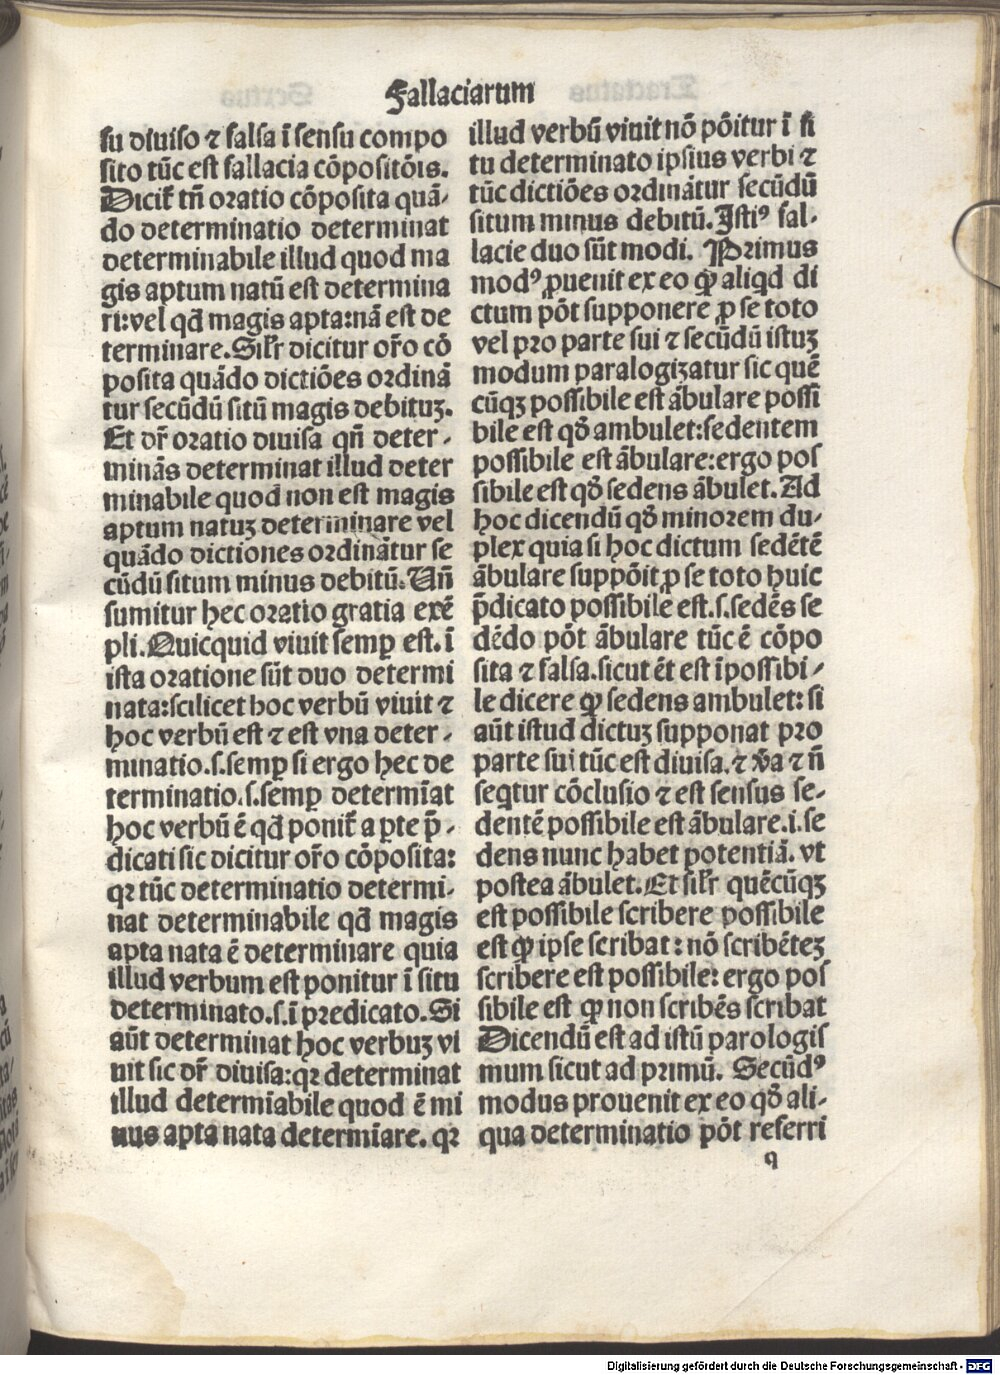 Fallaciarum
su diuiso ⁊ falsa ī sensu compo
sito tūc est fallacia cōpositōis.
Dicit᷑ tn̄ oratio cōposita quā-
do determinatio determinat
determinabile illud quod ma
gis aptum natū est determina
ri:vel qd̄ magis apta:nā est de
terminare. Silr̄ dicitur or̄o cō
posita quādo dictiōes ordinā
tur secūdū sitū magis debituꝫ.
Et dr̄ oratio diuisa qn̄ deter-
minās determinat illud deter
minabile quod non est magis
aptum natuꝫ determinare vel
quādo dictiones ordinātur se
cūdū situm minus debitū. Un̄
sumitur hec oratio gratia exē
pli. Quicquid viuit semꝑ est. ī
ista oratione sūt duo determi
nata:scilicet hoc verbū viuit ⁊
hoc verbū est ⁊ est vna deter-
minatio.s.semꝑ si ergo hec de
terminatio.s.semꝑ determīat
hoc verbū ē qd̄ ponit᷑ a ꝑte p̄-
dicati sic dicitur or̄o cōposita:
qꝛ tūc determinatio determi-
nat determinabile qd̄ magis
apta nata ē determinare quia
illud verbum est ponitur ī situ
determinato.s.ī predicato. Si
aūt determinat hoc verbuꝫ vi
uit sic dr̄ diuisa:qꝛ determinat
illud determīabile quod ē mi
nus apta nata determīare. qꝛ
illud verbū viuit nō pōitur ī si
tu determinato ipsius verbi ⁊
tūc dictiōes ordinātur secūdū
situm minus debitū. Istiꝰ fal-
lacie duo sūt modi. Primus
modꝰ ꝓuenit ex eo ꝙ aliqd di
ctum pōt supponere ꝓ se toto
vel pro parte sui ⁊ secūdū istuꝫ
modum paralogizatur sic quē
cūqꝫ possibile est ābulare possi
bile est qō ambulet:sedentem
possibile est ābulare:ergo pos
sibile est qō sedens ābulet. Ad
hoc dicendū qō minorem du-
plex quia si hoc dictum sedētē
ābulare suppōit ꝓ se toto huic
p̄dicato possibile est.s.sedēs se
dēdo pōt ābulare tūc ē cōpo
sita ⁊ falsa.sicut ēt est īpossibi-
le dicere ꝙ sedens ambulet: si
aūt istud dictuꝫ supponat pro
parte sui tūc est diuisa.⁊ v̄a ⁊ n̄
seqtur cōclusio ⁊ est sensus se-
dentē possibile est ābulare.i.se
dens nunc habet potentiā. vt
postea ābulet. Et silr̄ quēcūqꝫ
est possibile scribere possibile
est ꝙ ipse scribat: nō scribēteꝫ
scribere est possibile: ergo pos
sibile est ꝙ non scribēs scribat
Dicendū est ad istū parologis
mum sicut ad primū. Secūdꝰ
modus prouenit ex eo qō ali-
qua determinatio pōt referri
q
Digitalisierung gefördert durch die Deutsche Forschungsgemeinschaft - DFG